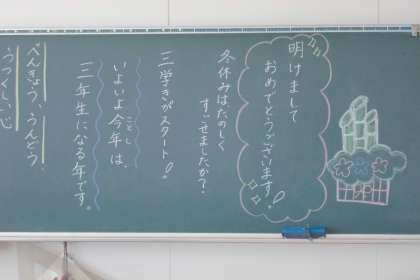 明けまして
おめでとうございます!
冬休みは、たのしく
すごせましたか?
三学きがスタート!
いよいよ今年は、
ことし
三年生になる年です。
べんきょう、うんどう、
うつくしい心